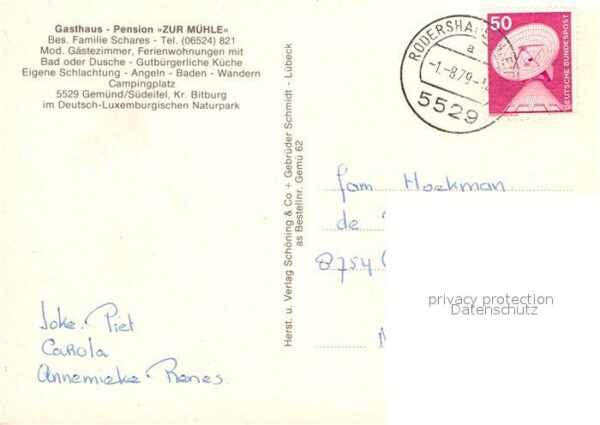 Gasthaus - Pension »ZUR MÜHLE«
Bes. Familie Schares - Tel. (06524) 821
Mod. Gästezimmer, Ferienwohnungen mit
Bad oder Dusche - Gutbürgerliche Küche
Eigene Schlachtung - Angeln - Baden - Wandern
Campingplatz
5529 Gemünd/Südeifel, Kr. Bitburg
im Deutsch-Luxemburgischen Naturpark
Herst. u. Verlag Schöning & Co + Gebrüder Schmidt - Lübeck
as Bestellnr. Gemü 62
a
-1.-8.79-
5529
50
DEUTSCHE BUNDESPOST
fam Hoekman
de
8754
privacy protection
Datenschutz
Joke. Piet
Carola
Annemieke Renes.